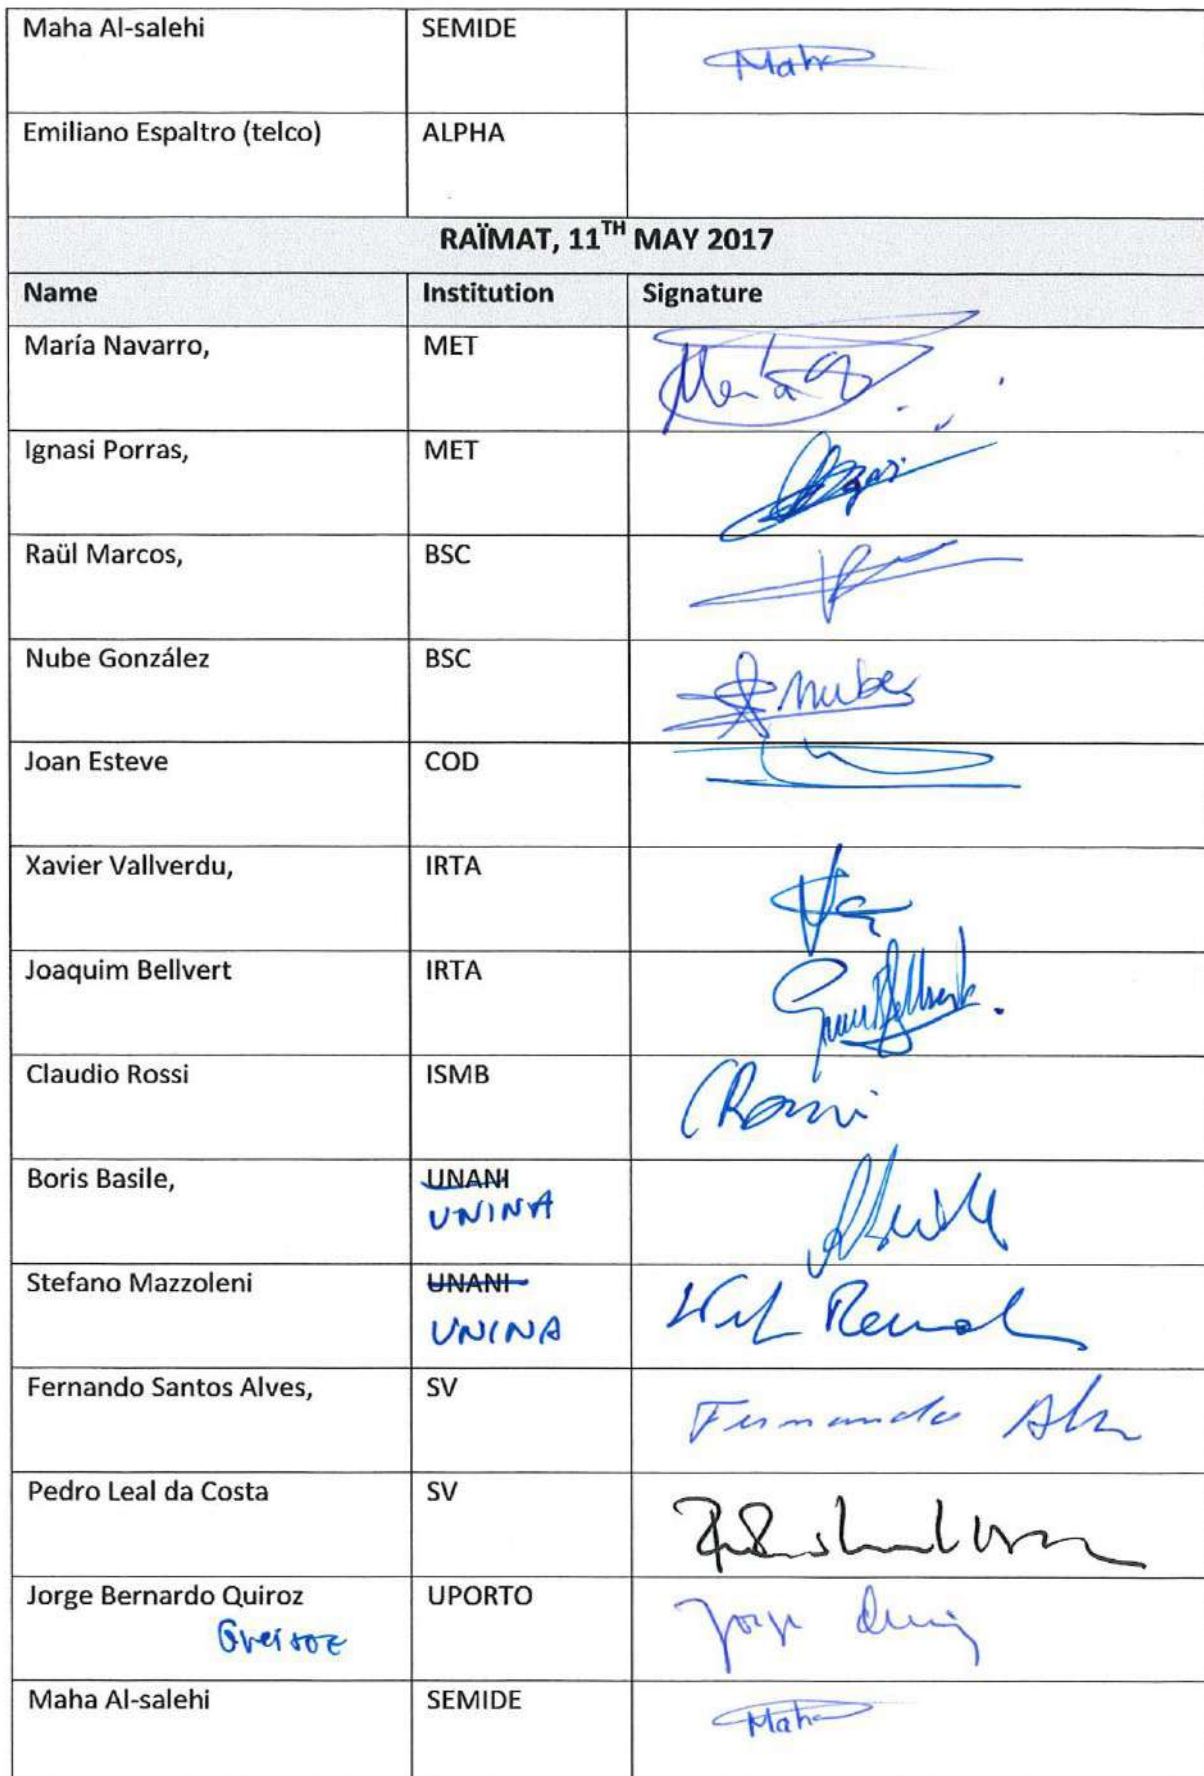 Maha Al-salehi SEMIDE Maha
Emiliano Espaltro (telco) ALPHA
RAÏMAT, 11TH MAY 2017
Name Institution Signature
María Navarro, MET
Ignasi Porras, MET
Raül Marcos, BSC
Nube González BSC Nube
Joan Esteve COD
Xavier Vallverdu, IRTA
Joaquim Bellvert IRTA
Claudio Rossi ISMB CRossi
Boris Basile, UNANI
UNINA
Stefano Mazzoleni UNANI
UNINA
Fernando Santos Alves, SV Fernando Alv
Pedro Leal da Costa SV
Jorge Bernardo Quiroz UPORTO Jorge
Maha Al-salehi SEMIDE Maha